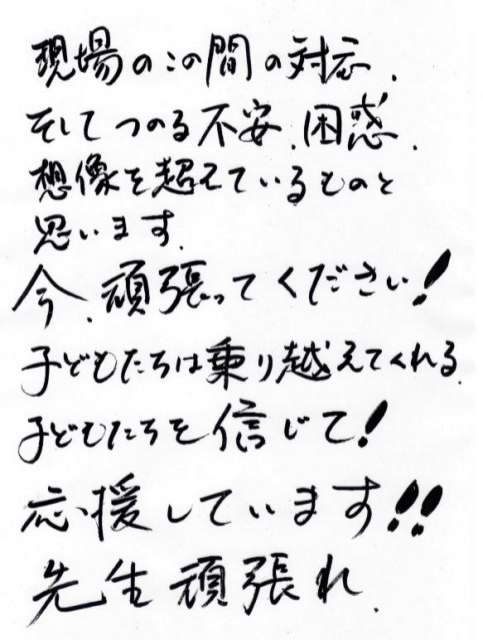 現場のこの間の対応、
そしてつのる不安、困惑、
想像を超えているものと
思います。
今、頑張ってください!
子どもたちは乗り越えてくれる。
子どもたちを信じて!
応援しています!!
先生頑張れ。